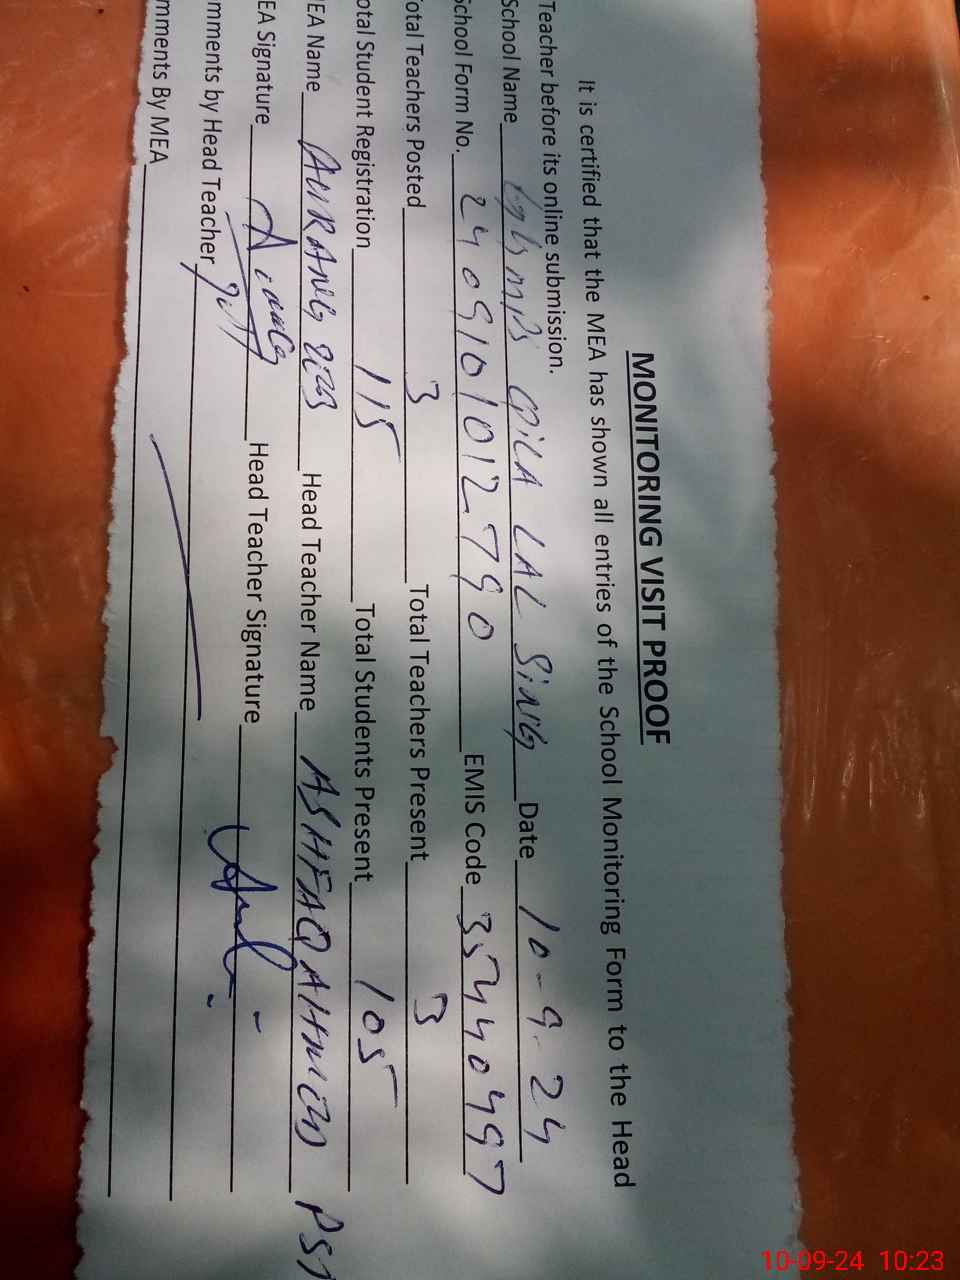 MONITORING VISIT PROOF
It is certified that the MEA has shown all entries of the School Monitoring Form to the Head
Teacher before its online submission.
School Name QILA LAL SiNG Date 10-9-24
School Form No. 2409101012790 EMIS Code 35440497
otal Teachers Posted 3 Total Teachers Present 3
otal Student Registration 115 Total Students Present 105
EA Name AURANG Head Teacher Name ASHFAQ AHMED PST
EA Signature Head Teacher Signature
mments by Head Teacher
mments By MEA
10-09-24 10:23